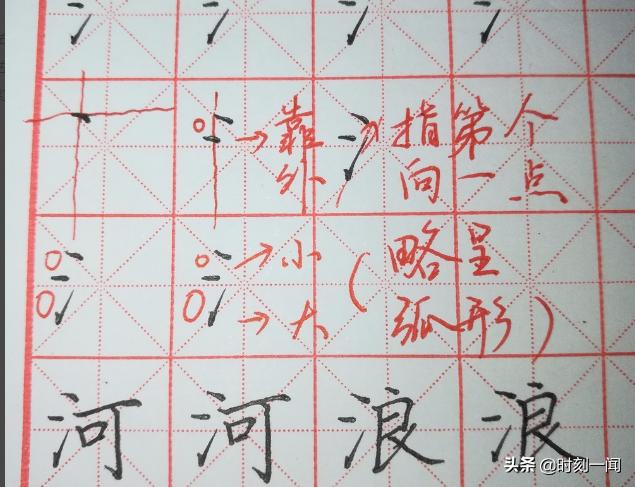 氵 氵 氵 氵
→靠 指第个
外 向一点
→小 (略呈
→大 弧形)
河 河 浪 浪
头条 @时刻一闻